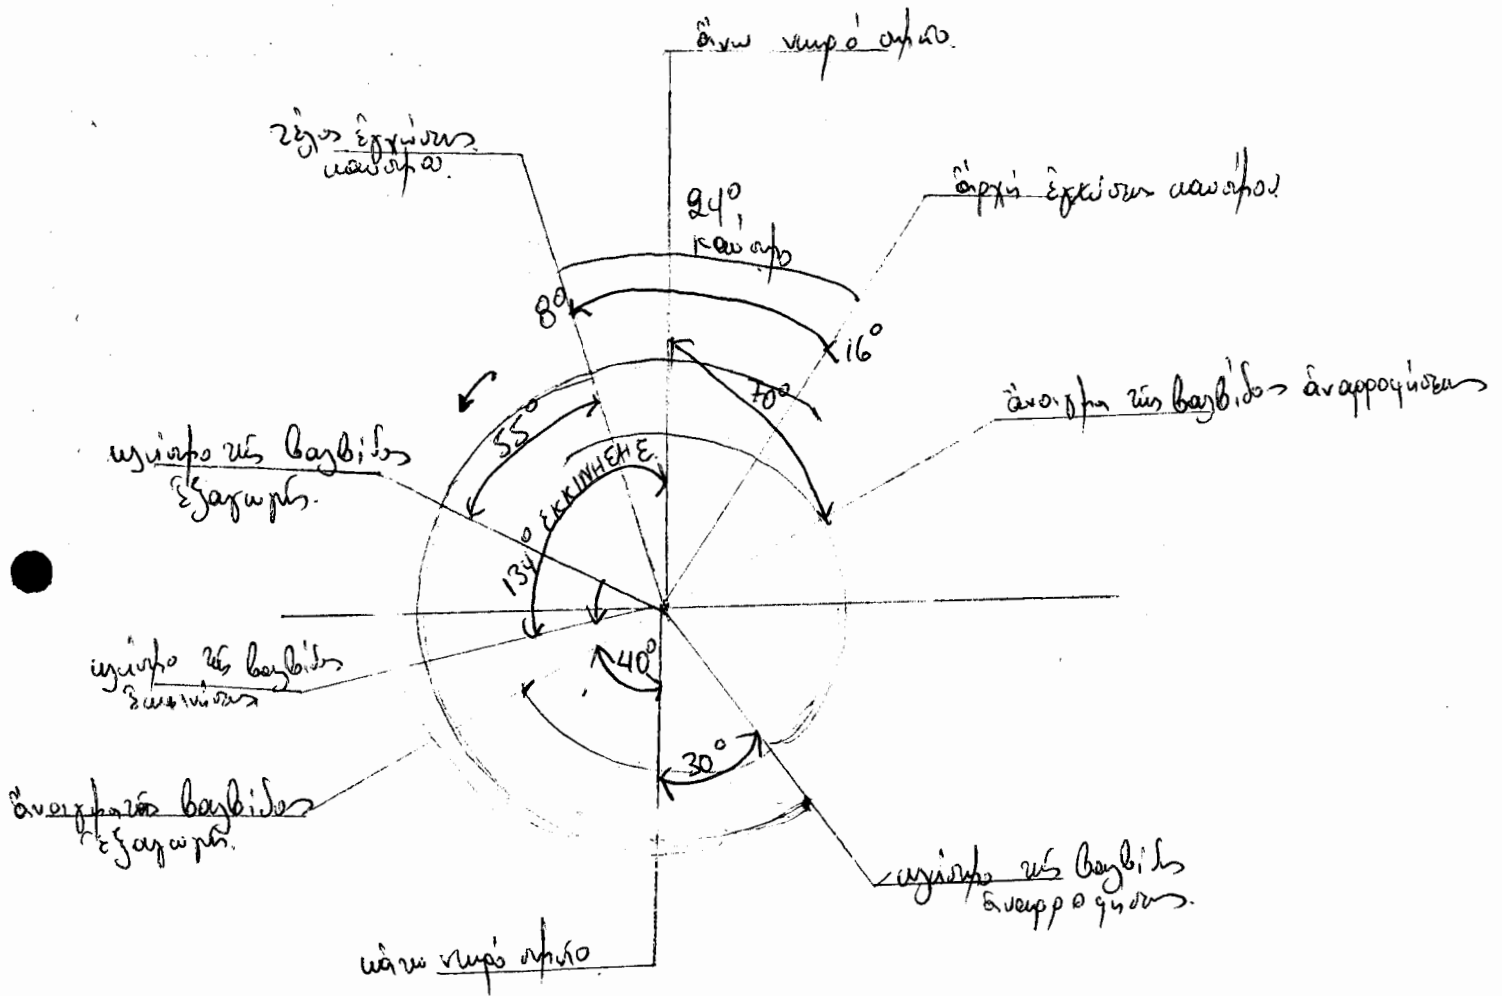 ἄνω νεκρό σημεῖο.
τέλος ἐγχύσεως
καυσίμου.
ἀρχή ἐγχύσεως καυσίμου.
24°
καύσιμο
8°
16°
70°
ἄνοιγμα τῆς βαλβίδος ἀναρροφήσεως
55°
κλείσιμο τῆς βαλβίδος
ἐξαγωγῆς.
134° ΕΚΚΙΝΗΣΗΣ.
κλείσιμο τῆς βαλβίδος
ἐκκινήσεως
40°
30°
ἄνοιγμα τῆς βαλβίδος
ἐξαγωγῆς.
κλείσιμο τῆς βαλβίδος
ἀναρροφήσεως.
κάτω νεκρό σημεῖο